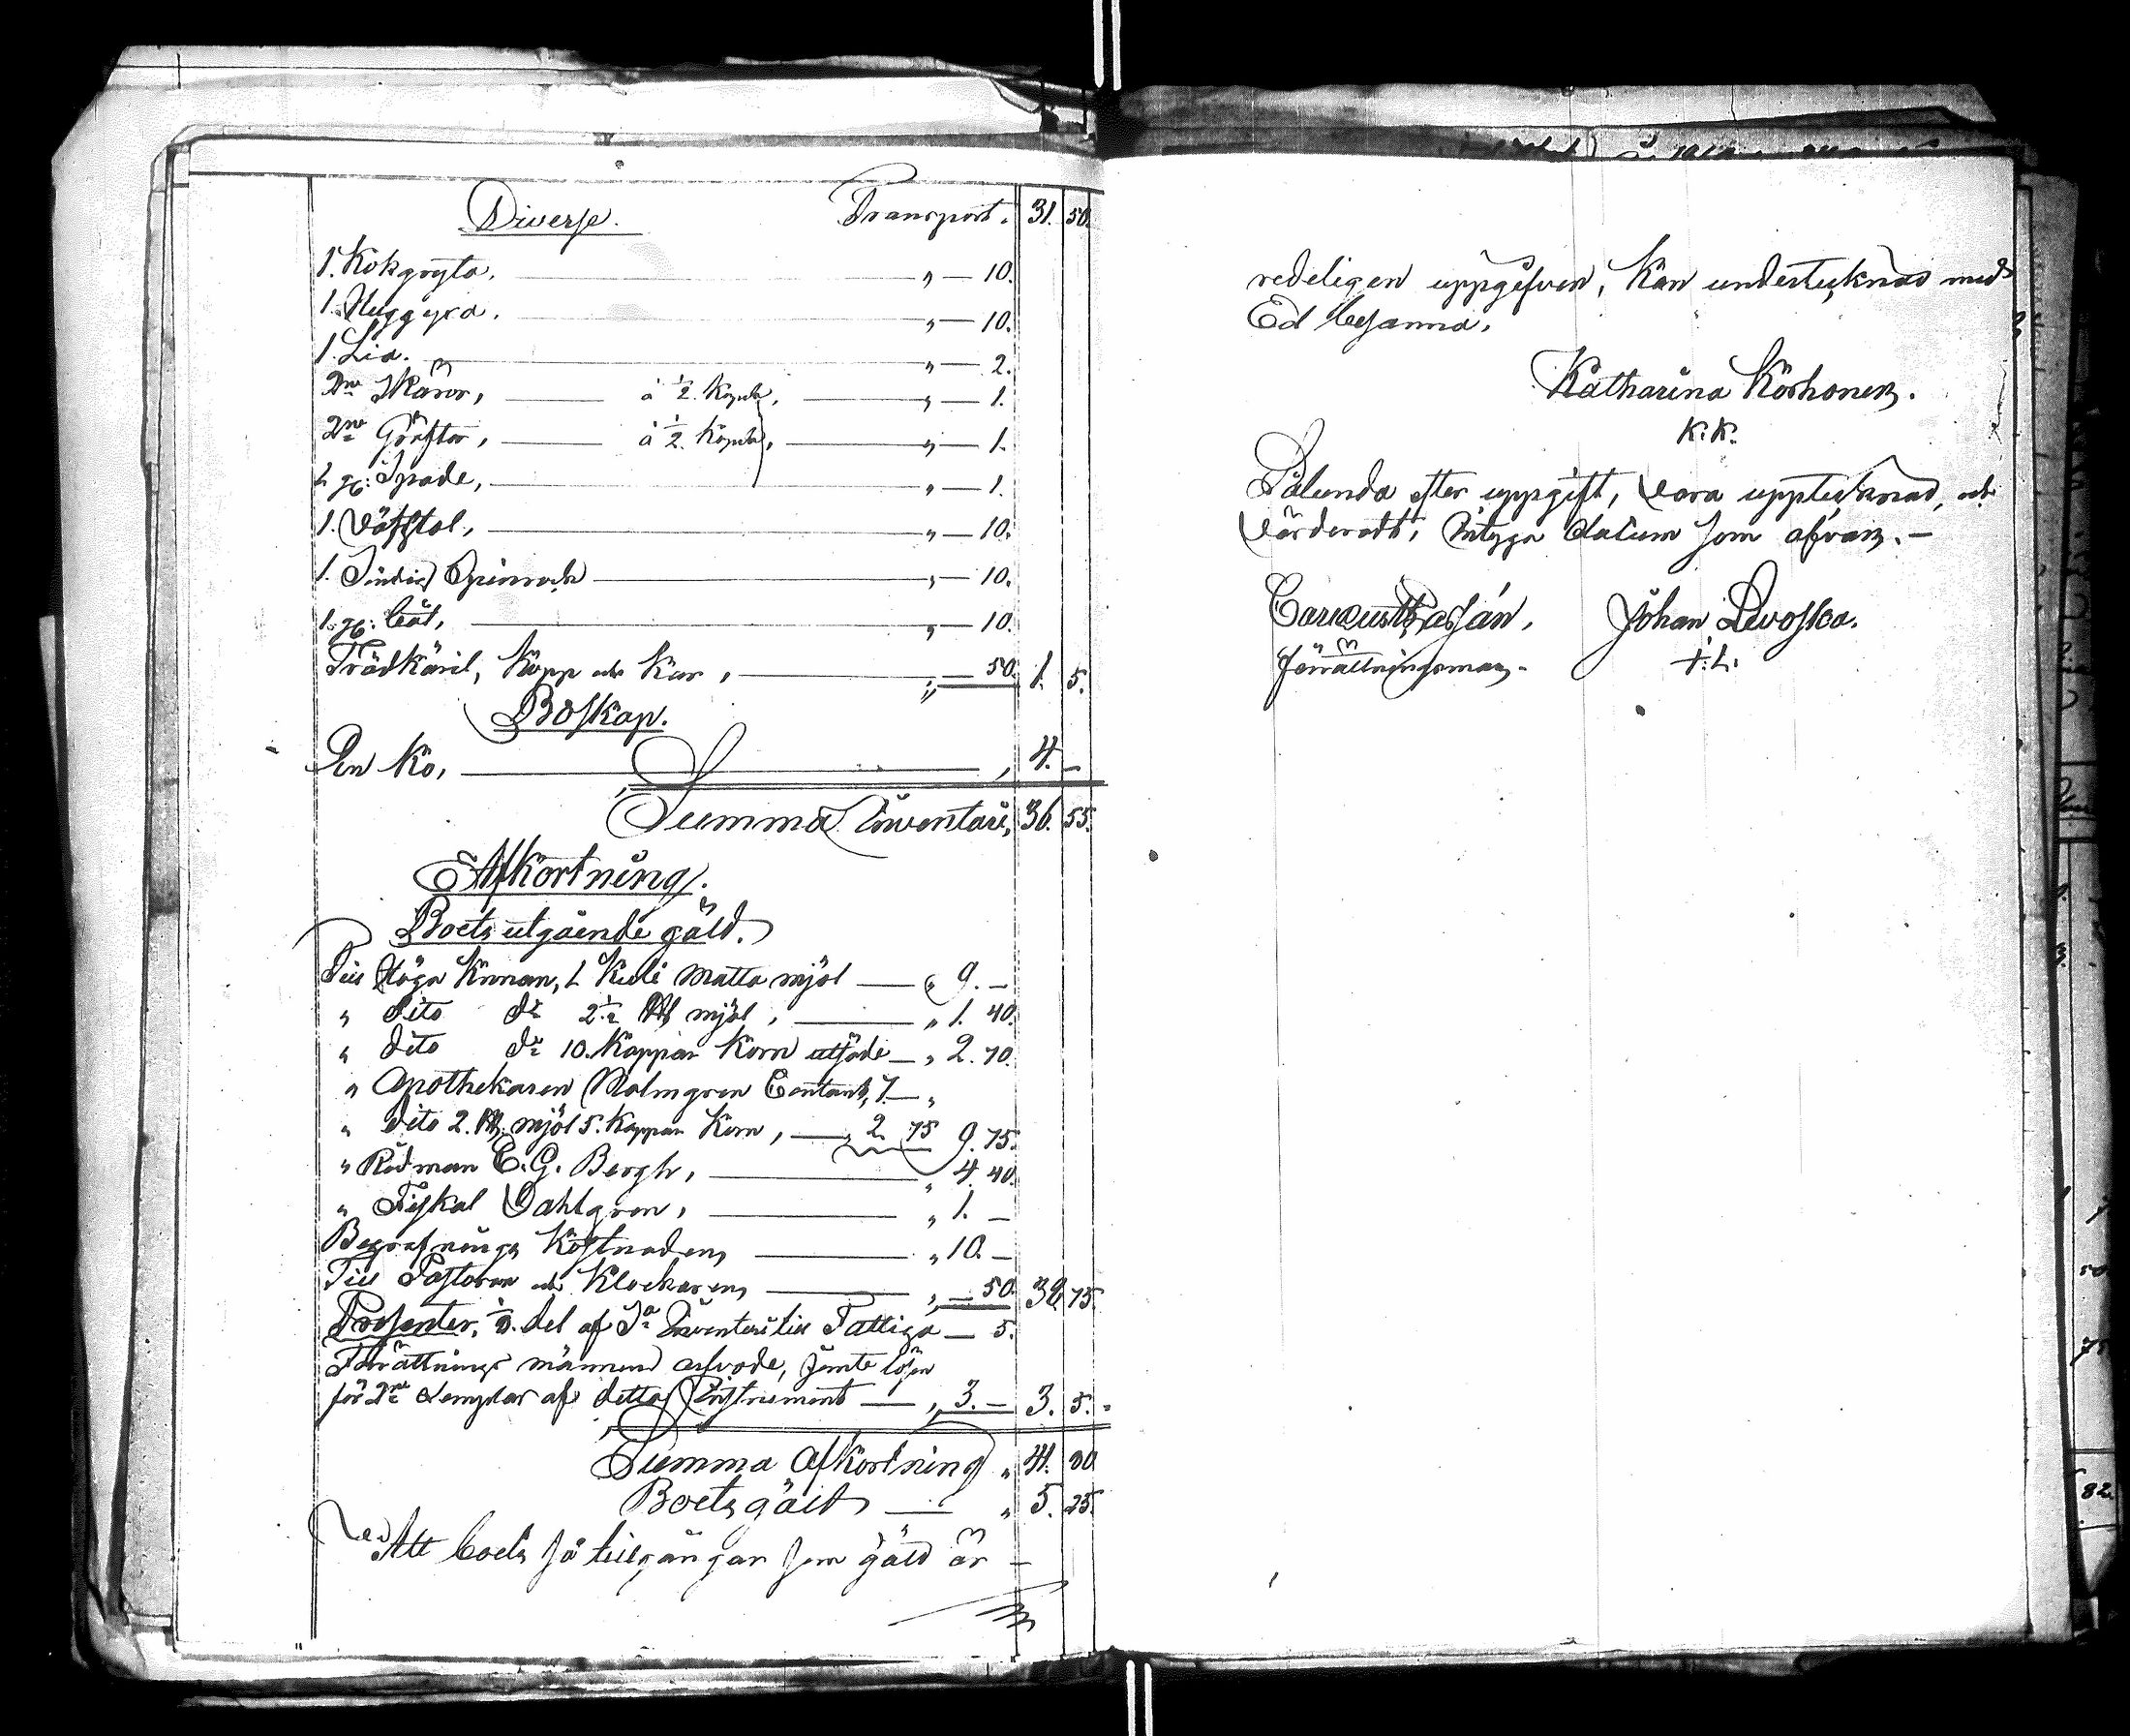 Diverse. Transport. 31. 50.
1. Kokgryta, " — 10.
1. Huggyxa. " — 10.
1. Lia. " — 2.
2ne Skäror, à 1/2. Kopek, " — 1.
2ne Gräftor, à 1/2. Kopek, " — 1.
1 gl: Spade, " — 1.
1. Väfstol, " — 10.
1. Spinnrock " — 10.
1. gl: båt, " — 10.
Trädkäril, Kopp och Kar, " — 50. 1. 5.
Boskap.
En Ko, " 4. –
Summa Inventari, 36. 55.
Afkortning.
Boets utgående gäld.
Till Höga Kronan, 1 Kuli Matta mjöl — " 9. –
" dito do 2 1/2 mjöl, " 1. 40.
" dito do 10. Kappar Korn utsäde — " 2. 70.
" Apothekaren Malmgren Contant, 7. — "
" dito 2. mjöl 5. Kappar Korn, — " 2. 75 9. 75.
" Rådman E. G. Bergh, " 4. 40.
" Fiskal Dahlgren, " 1. –
Begrafnings Kostnaden, " 10. –
Till Pastoren och Klockaren, " — 50. 38. 75.
Procenter, 1/8. del af Sa Inventarii till Fattiga — 5.
Förrättnings männens arfvode, jemte lösen
för 2ne exemplar af detta Instrument — " 3. – 3. 5.
Summa Afkortning " 41. 80.
Boets gäld — " 5. 25.
Att boets så tillgångar som gäld är –
redeligen uppgifven, Kan undertecknad med
Ed besanna.
Katharina Korhonen.
K. K.
Sålunda efter uppgift, vara upptecknad, och
Värderadt, Intyga datum som ofvan. –
Johan Levoska.
Förrättningsman. J. L.